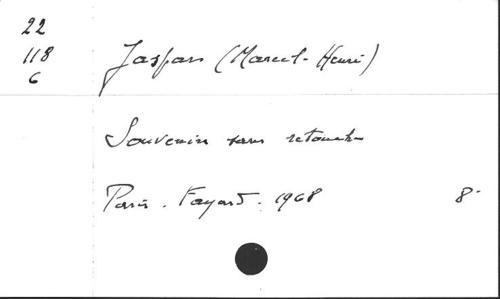 22
118
6
Jaspar (Marcel-Henri)
Souvenirs sans retouche
Paris. Fayard. 1968 8°